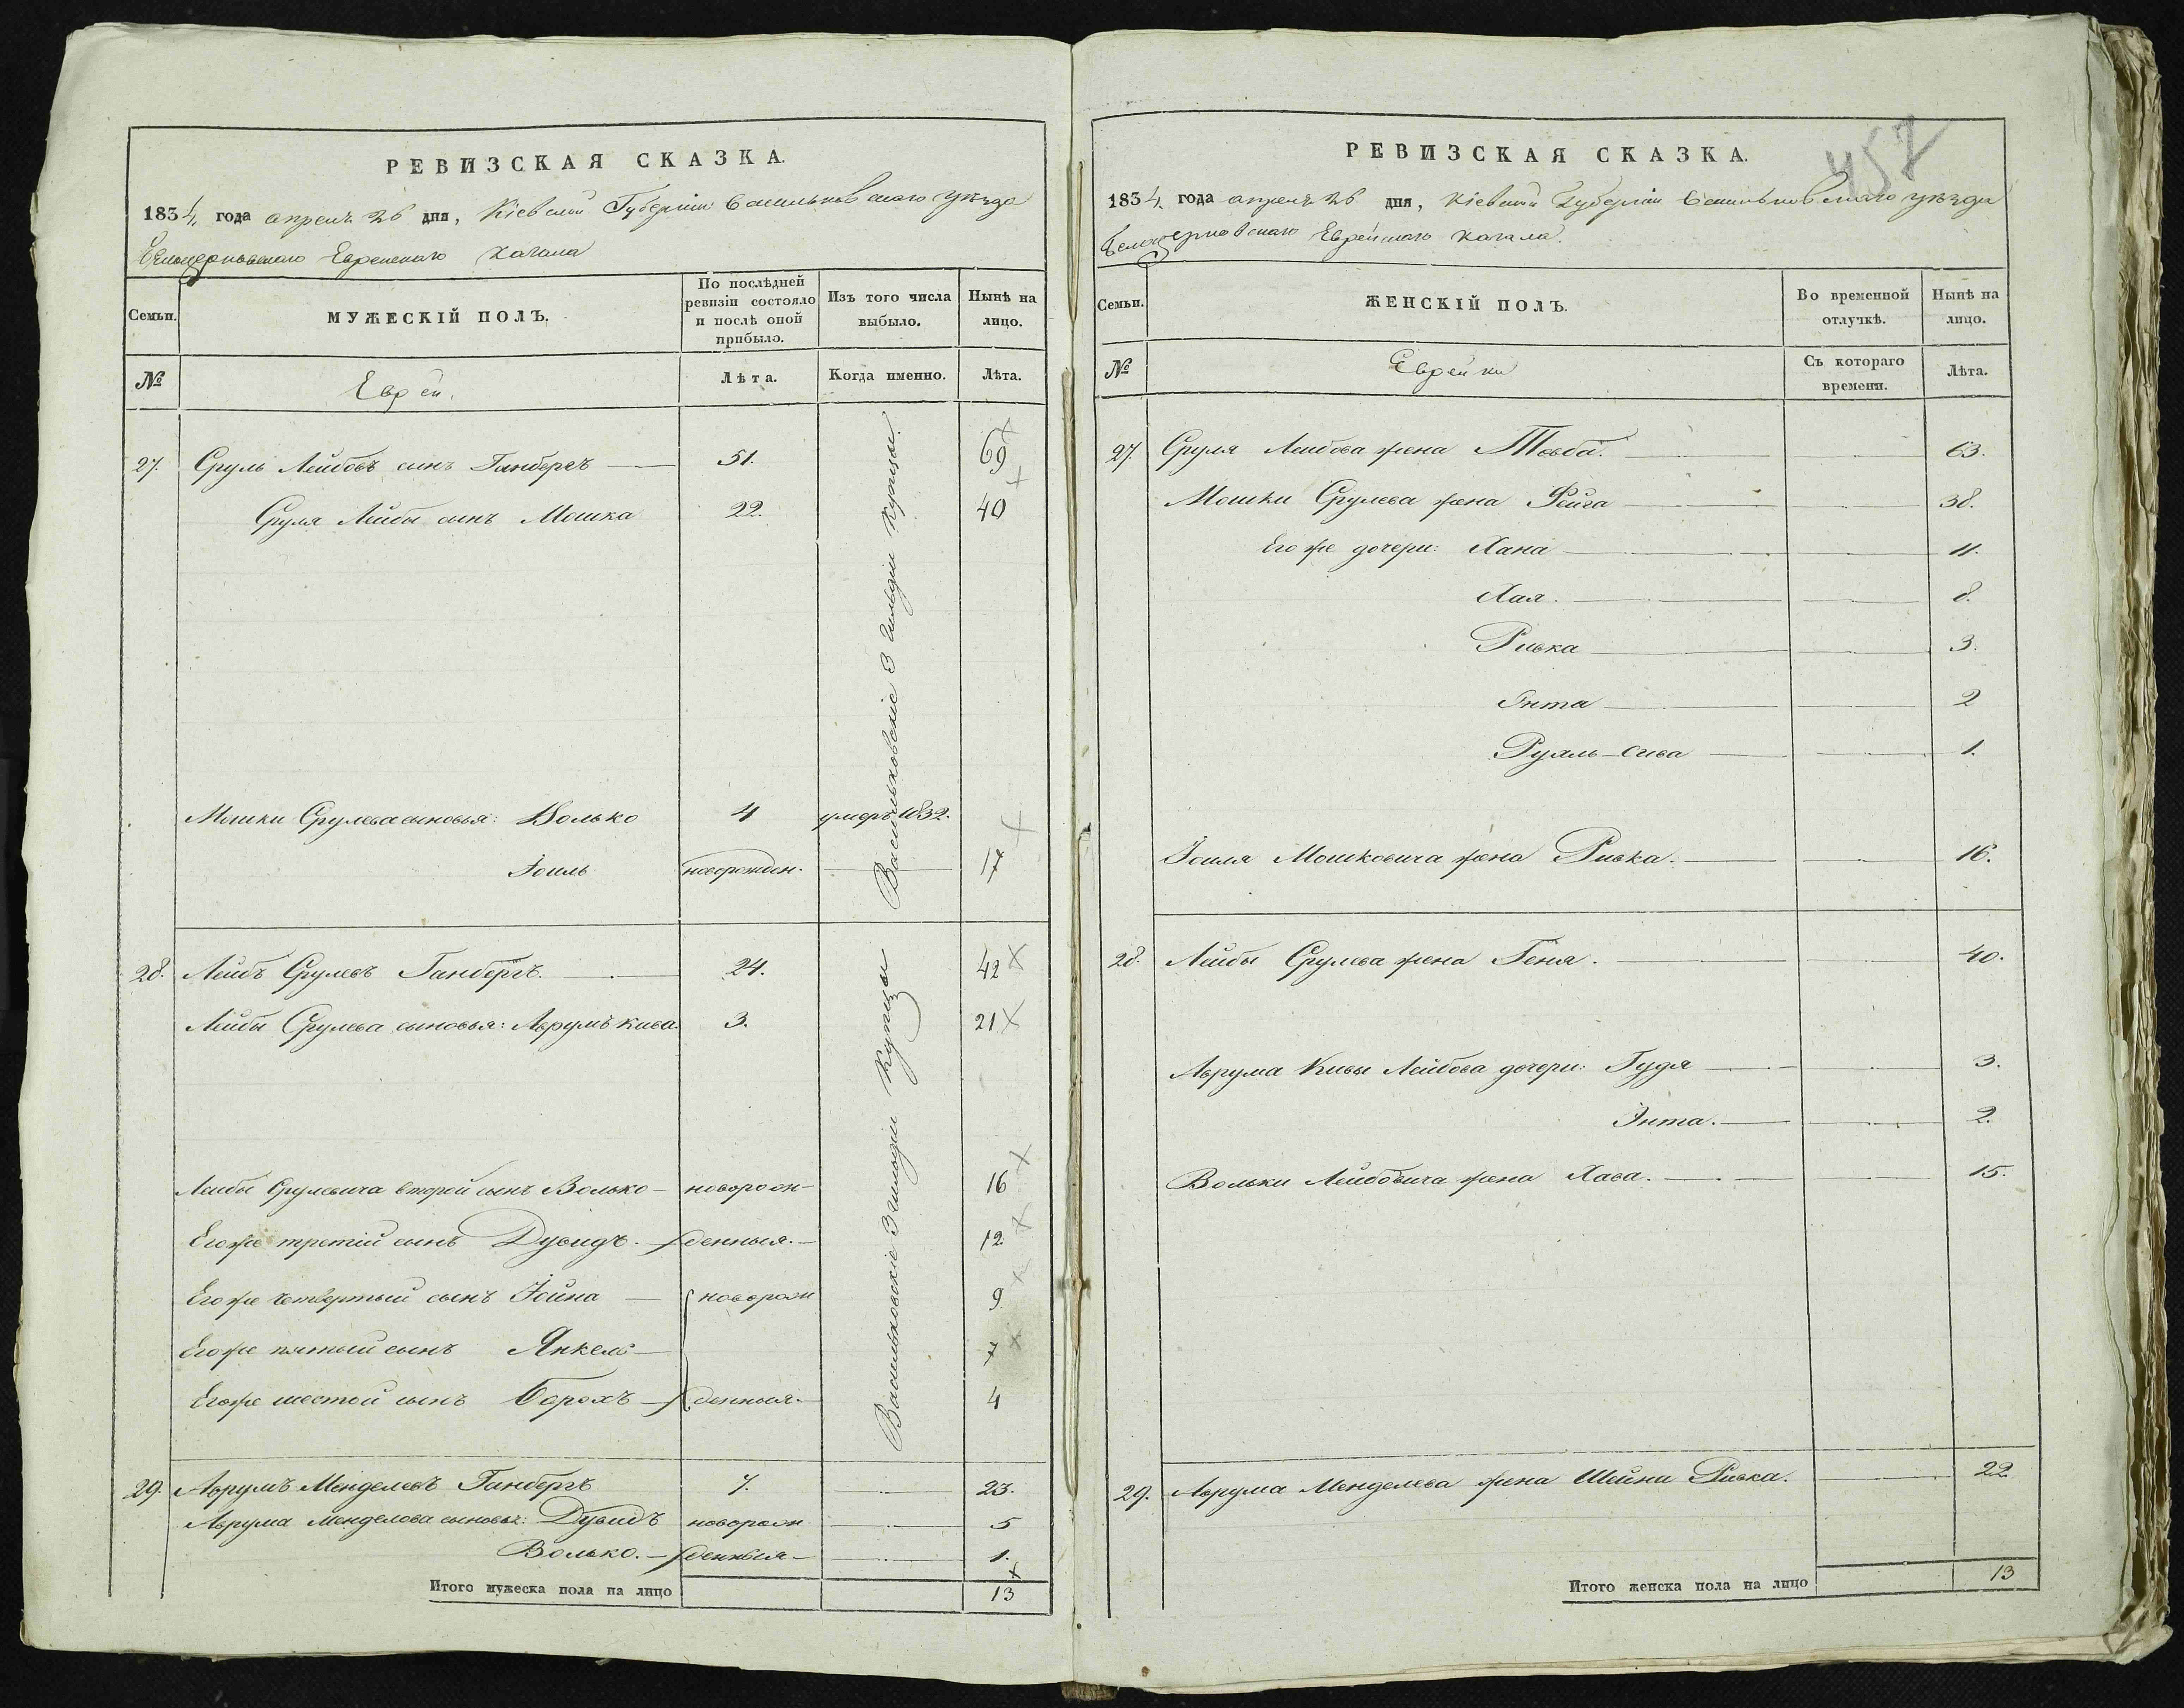 РЕВИЗСКАЯ СКАЗКА.
1834 года апреля 26 дня, Кіевской Губерніи Васильковскаго уѣзда
Бѣлоцерковскаго Еврейскаго Кагала
Семьи.
МУЖЕСКІЙ ПОЛЪ.
По послѣдней ревизіи состояло и послѣ оной прибыло.
Изъ того числа выбыло.
Нынѣ на лицо.
№
Евреи.
Лѣта.
Когда именно.
Лѣта.
27. Сруль Лейбовъ сынъ Ганбергъ 51. 69
Сруля Лейбы сынъ Мошка 22. 40
Мошки Срулева сыновья: Волько 4 умеръ 1832.
Іоиль новорожден. 17
Васильковскіе 3 Гильдіи Купцы.
28. Лейбъ Срулевъ Ганбергъ. 24. 42
Лейбы Срулева сыновья: Аврумъ Кива. 3. 21
Лейбы Срулевича второй сынъ Волько новорож- 16
Егоже третій сынъ Дувидъ. денныя. 12
Егоже четвертый сынъ Іойна новорож 9
Егоже пятый сынъ Янкель 7
Егоже шестой сынъ Борохъ денныя. 4
Васильковскіе 3 гильдіи Купцы
29. Аврумъ Менделевъ Ганбергъ 7. 23.
Аврума Менделева сыновья: Дувидъ новорож 5
Волько. денныя 1.
Итого мужеска пола на лицо 13
457
РЕВИЗСКАЯ СКАЗКА.
1834 года апреля 26 дня, Кіевской Губерніи Васильковскаго уѣзда
Белоцерковскаго Еврейскаго Кагала.
Семьи.
ЖЕНСКІЙ ПОЛЪ.
Во временной отлучкѣ.
Нынѣ на лицо.
№
Еврейки
Съ котораго времени.
Лѣта.
27. Сруля Лейбова жена Товба. 63.
Мошки Срулева жена Фейга 38.
Его же дочери: Хана 11.
Хая. 8.
Ривка 3.
Энта 2
Рухль-Сива 1.
Іоиля Мошковича жена Ривка. 16.
28. Лейбы Срулева жена Геня. 40.
Аврума Кивы Лейбова дочери: Гудя 3.
Энта. 2.
Вольки Лейбовича жена Хава. 15.
29. Аврума Менделева жена Шейна Ривка. 22
Итого женска пола на лицо 13